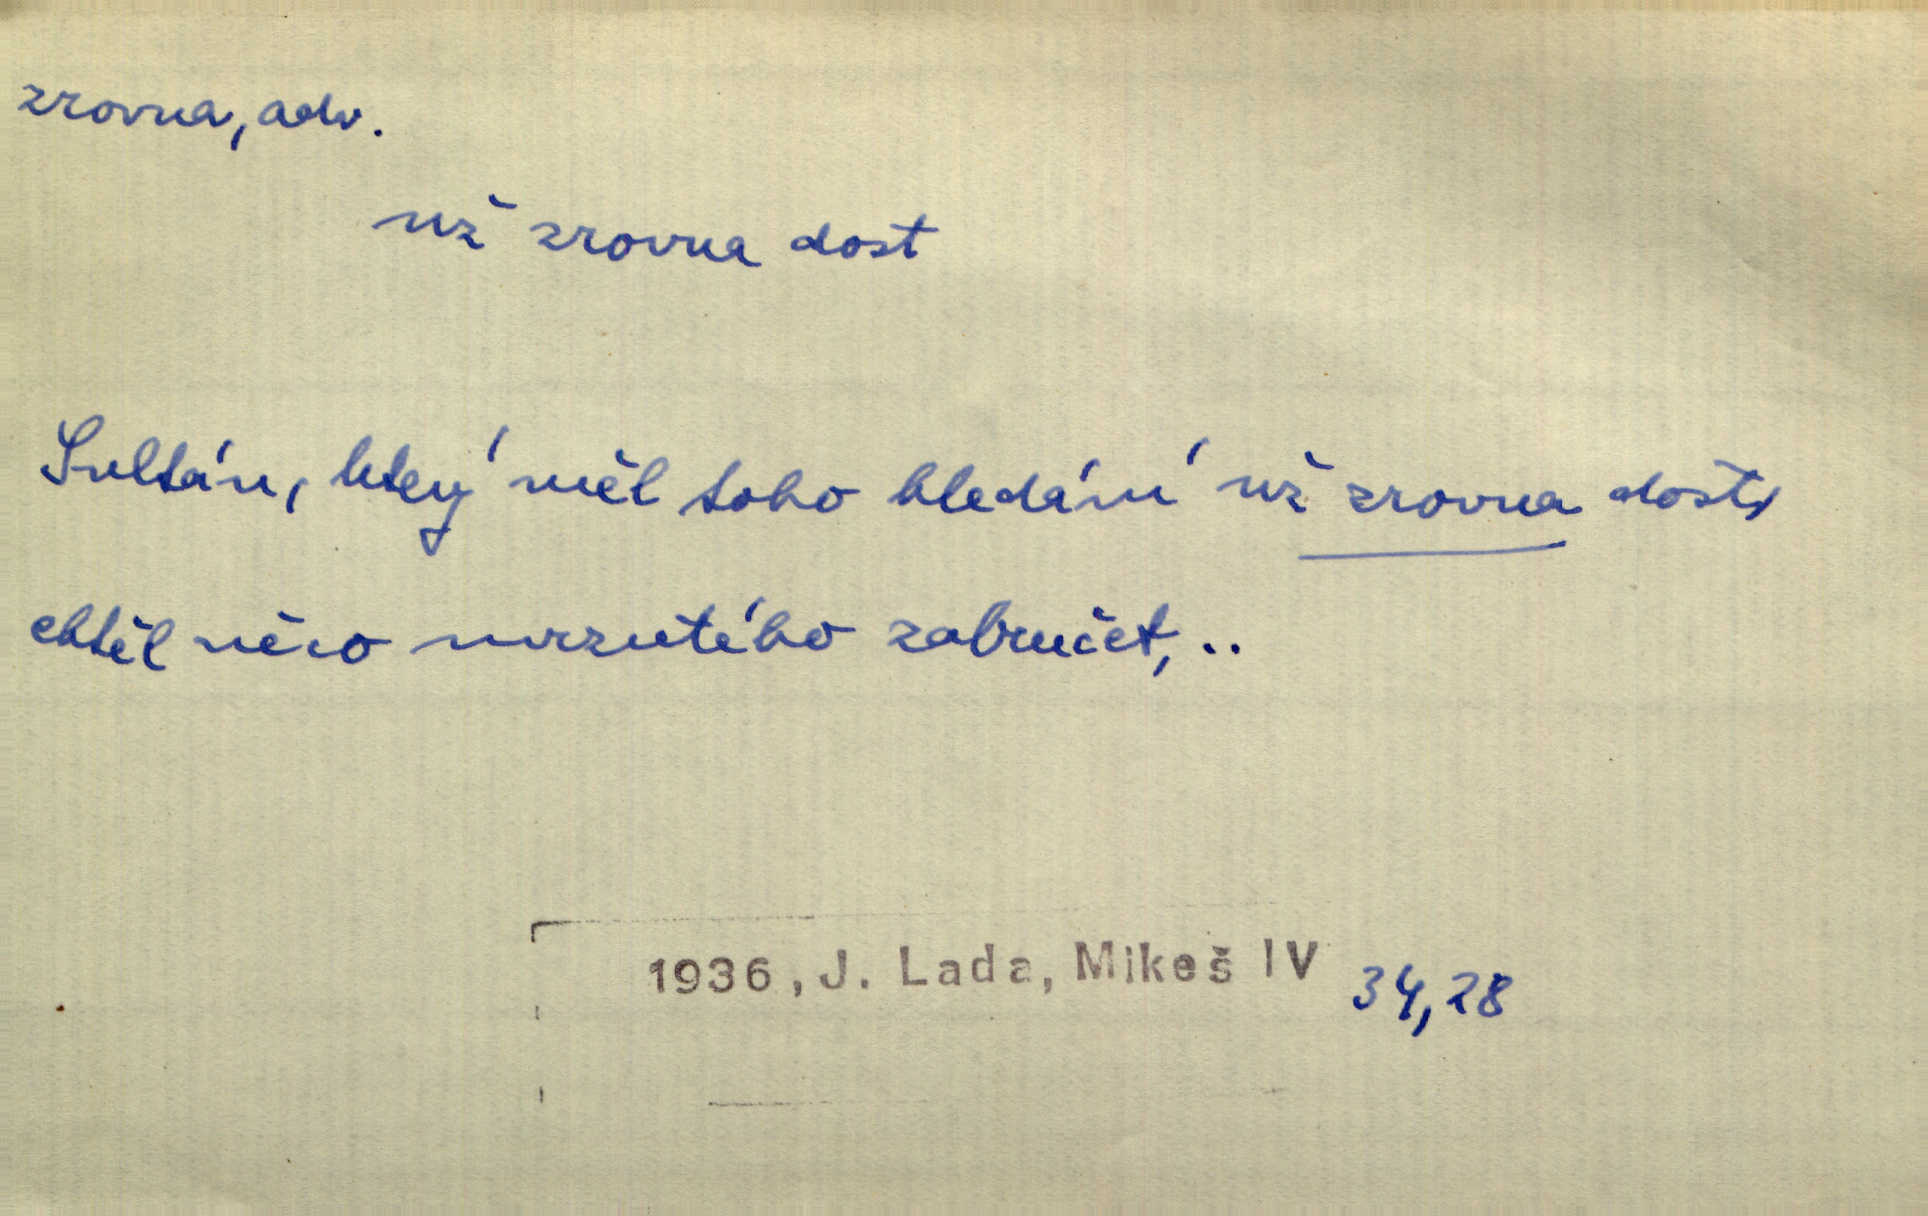 zrovna, adv.
už zrovna dost
Sultán, který měl toho hledání už zrovna dost,
chtěl něco mrzutého zabručet, ..
1936, J. Lada, Mikeš IV 34,28